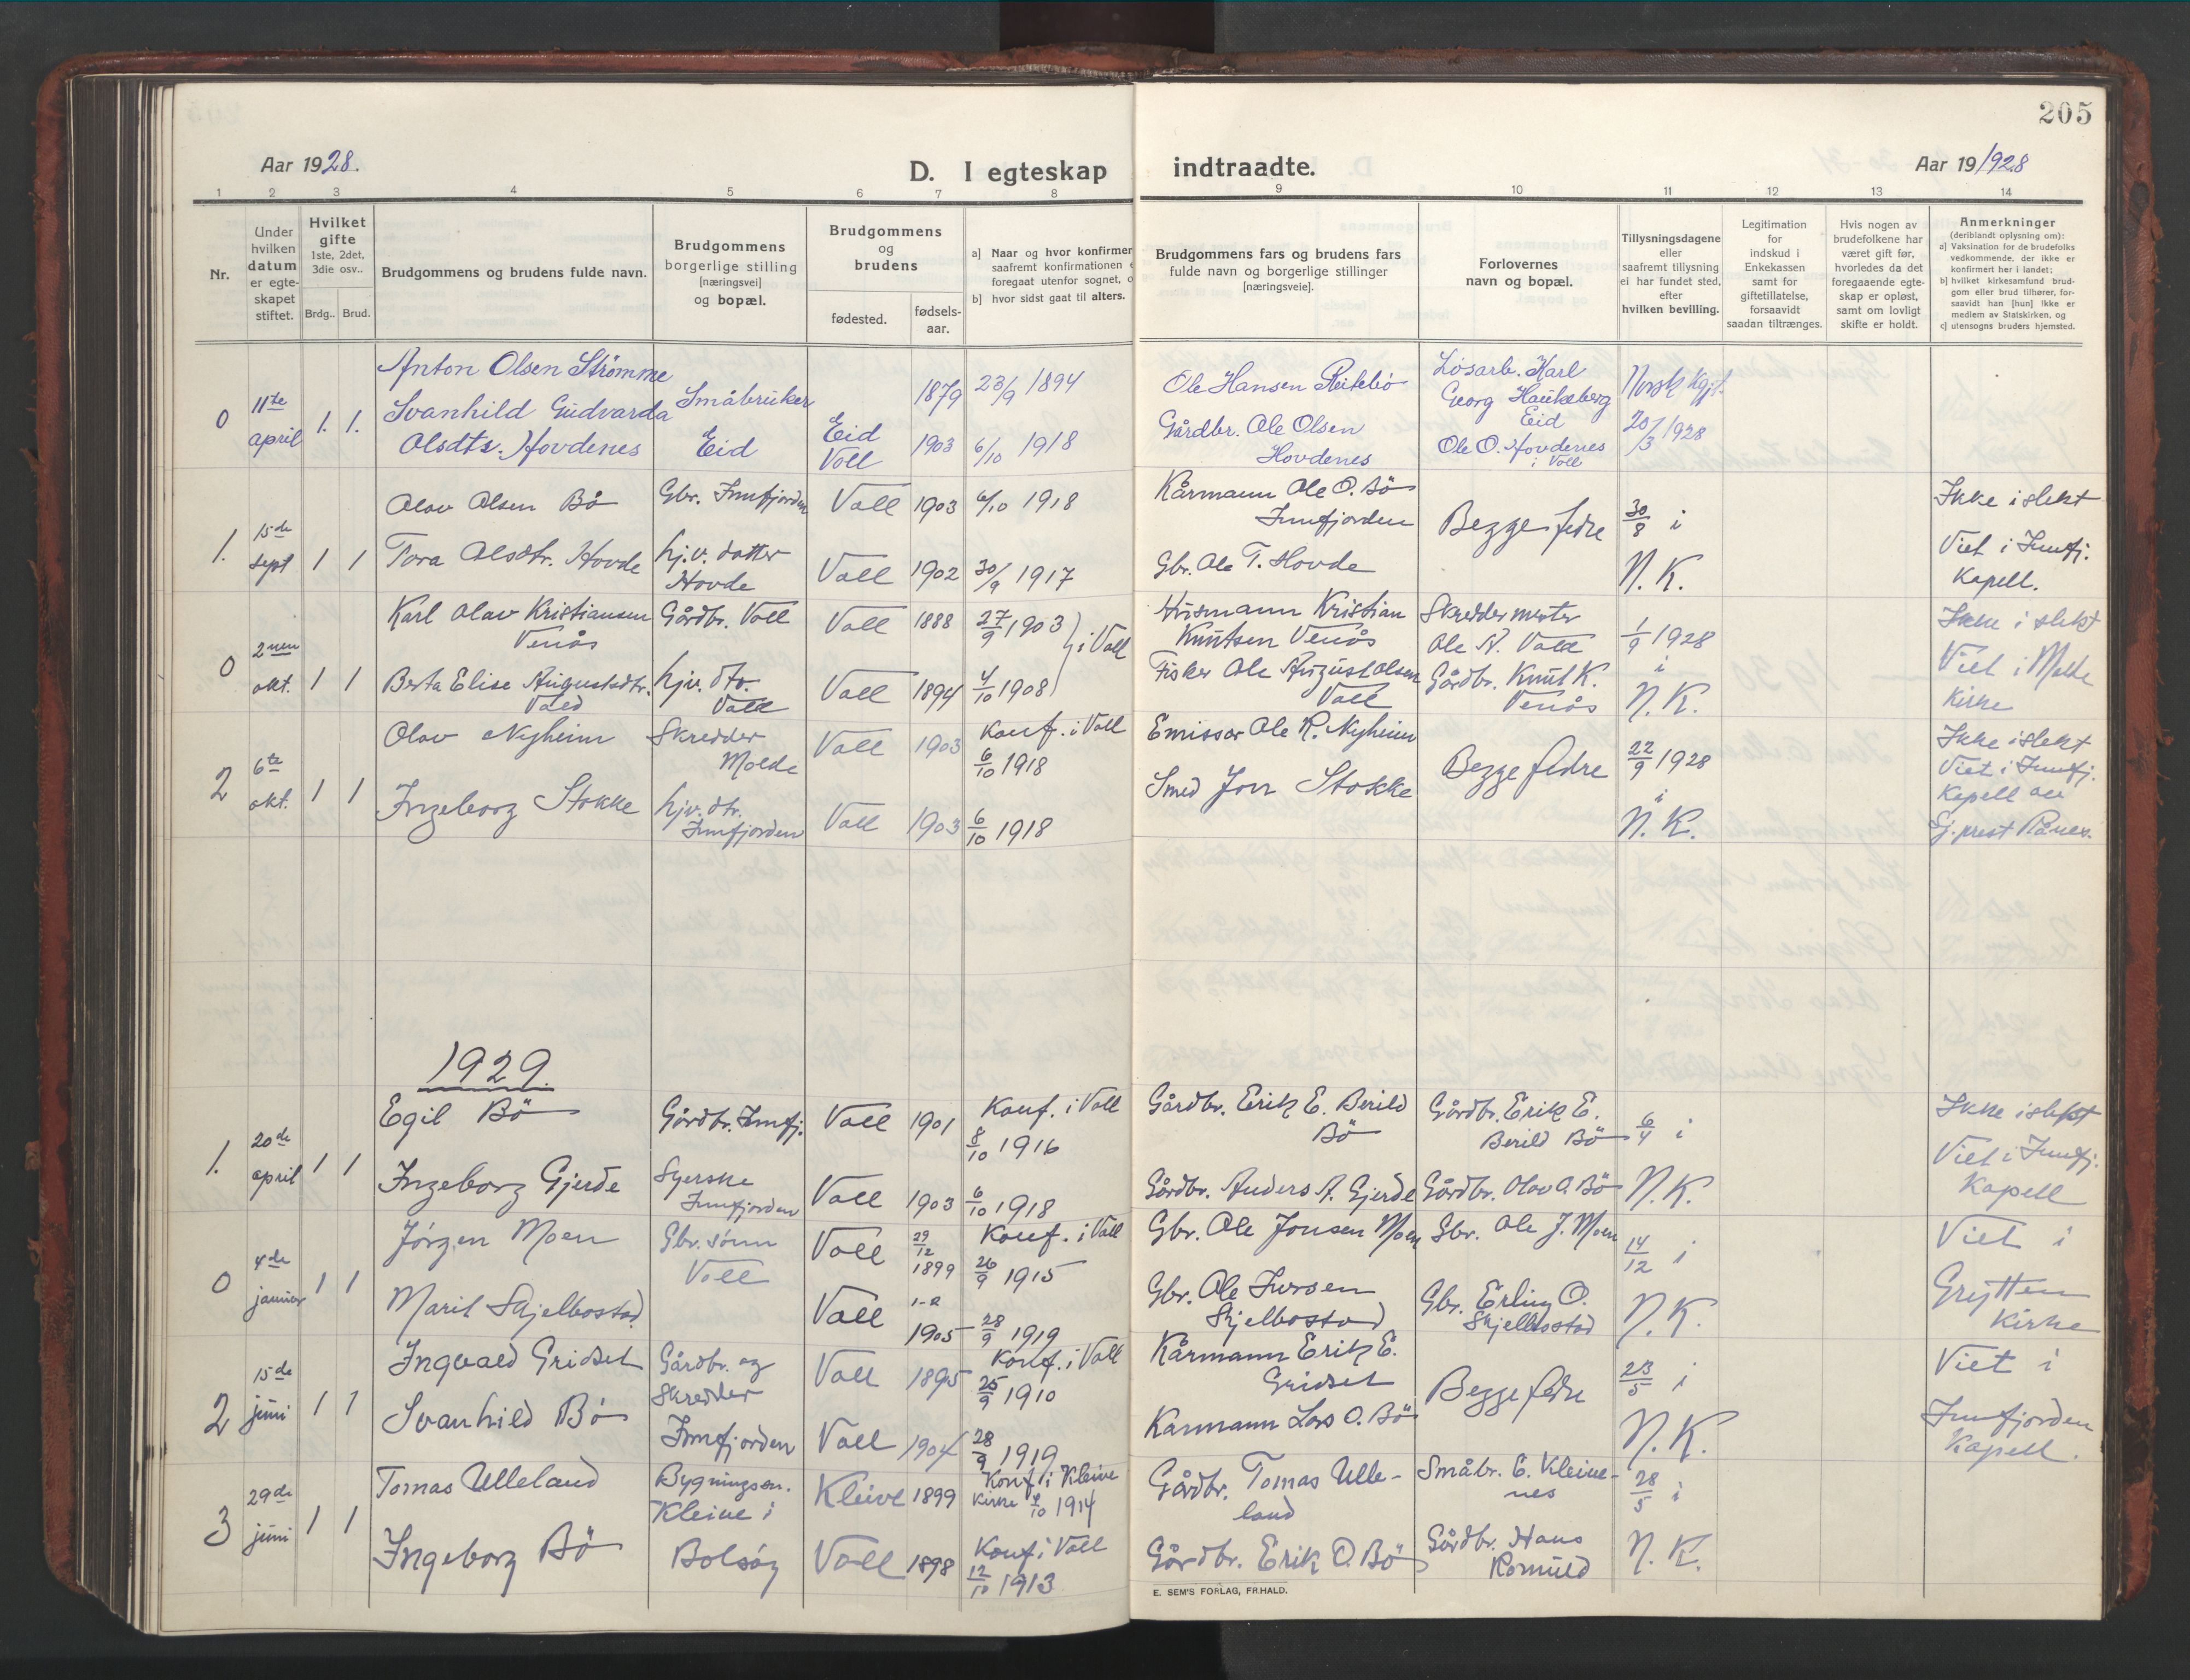 205
Aar 1928.
D. I egteskap
indtraadte.
Aar 19/928
1 2 3 4 5 6 7 8 9 10 11 12 13 14
Nr.
Under hvilken datum er egteskapet stiftet.
Hvilket gifte 1ste, 2det, 3die osv..
Brdg.. Brud.
Brudgommens og brudens fulde navn.
Brudgommens borgerlige stilling [næringsvei] og bopæl.
Brudgommens og brudens
fødested.
fødsels-aar.
a) Naar og hvor konfirmer
saafremt konfirmationen
foregaat utenfor sognet,
b) hvor sidst gaat til alters.
Brudgommens fars og brudens fars
fulde navn og borgerlige stillinger
[næringsveie].
Forlovernes
navn og bopæl.
Tillysningsdagene
eller
saafremt tillysning
ei har fundet sted,
efter
hvilken bevilling.
Legitimation
for
indskud i
Enkekassen
samt for
giftetillatelse,
forsaavidt
saadan tiltrænges.
Hvis nogen av
brudefolkene har
været gift før,
hvorledes da det
foregaaende egte-
skap er opløst,
samt om lovligt
skifte er holdt.
Anmerkninger
(deriblandt oplysning om):
a) Vaksination for de brudefolks
vedkommende, der ikke er
konfirmert her i landet;
b) hvilket kirkesamfund brud-
gom eller brud tilhører, for-
saavidt han [hun] ikke er
medlem av Statskirken, og
c) utensogns bruders hjemsted.
0 11te april 1. 1.
Anton Olsen Strömme
Småbruker Eid
Eid 1879 23/9 1894
Ole Hansen Reitebö
Lösarb. Karl Georg Haukeberg Eid
Norsk Kgjf. 20/3 1928
Svanhild Gudvarda Olsdtr. Hovdenes
Voll 1903 6/10 1918
Gårdbr. Ole Olsen Hovdenes
Ole O. Hovdenes i Voll
1. 15de sept 1 1
Olav Olsen Bö
Gbr. Innfjorden
Voll 1903 6/10 1918
Kårmann Ole O. Bö Innfjorden
Begge fedre
30/8 i N.K.
Ikke i slekt
Viet i Innfj. Kapell.
Tora Olsdtr. Hovde
hjv. datter Hovde
Voll 1902 30/9 1917
Gbr. Ole T. Hovde
0 2nen okt. 1 1
Karl Olav Kristiansen Venås
Gårdbr. Voll
Voll 1888 27/9 1903 } i Voll
Husmann Kristian Knutsen Venås
Skreddermester Ole N. Voll
1/9 1928 i N.K.
Ikke i slekt
Viet i Molde Kirke
Berta Elise Augustsdtr. Vold
hjv. dtr. Voll
Voll 1894 4/10 1908
Fisker Ole August Olsen Voll
Gårdbr. Knut K. Venås
2 6te okt. 1 1
Olav Nyheim
Skredder Molde
Voll 1903 Konf. i Voll 6/10 1918
Emissær Ole R. Nyheim
Begge fedre
22/9 1928 i N.K.
Ikke i slekt
Viet i Innfj. Kapell av Sj.prest Rånes.
Ingeborg Stokke
hjv. dtr. Innfjorden
Voll 1903 6/10 1918
Smed Jon Stokke
1929.
1. 20de april 1 1
Egil Bö
Gårdbr. Innfj.
Voll 1901 Konf. i Voll 8/10 1916
Gårdbr. Erik E. Berild Bö
Gårdbr. Erik E. Berild Bö
6/4 i N.K.
Ikke i slekt
Viet i Innfj. Kapell
Ingeborg Gjerde
Syerske Innfjorden
Voll 1903 6/10 1918
Gårdbr. Anders A. Gjerde
Gårdbr. Olav O. Bö
0 4de januar 1 1
Jörgen Moen
Gbr. sönn Voll
Voll 29/12 1899 Konf. i Voll 26/9 1915
Gbr. Ole Jonsen Moen
Gbr. Ole J. Moen
14/12 i N.K.
Viet i Grytten Kirke
Marit Skjelbostad
Voll 1905 28/9 1919
Gbr. Ole Iversen Skjelbostad
Gbr. Erling O. Skjelbostad
2 15de juni 1 1
Ingvald Gridset
Gårdbr. og skredder Innfjorden
Voll 1895 Konf. i Voll 25/9 1910
Kårmann Erik E. Gridset
Begge fedre
23/5 i N.K.
Viet i Innfjorden Kapell.
Svanhild Bö
Voll 1904 28/9 1919
Kårmann Lars O. Bö
3 29de juni 1 1
Tomas Ulleland
Bygningsm. Kleive i Bolsöy
Kleive 1899 Konf. i Kleive Kirke 4/10 1914
Gårdbr. Tomas Ulleland
Småbr. E. Kleivenes
28/5 i N.K.
Ingeborg Bö
Voll 1898 Konf i Voll 12/10 1913
Gårdbr. Erik O. Bö
Gårdbr. Hans Romuld
E. SEM'S FORLAG, FR.HALD.